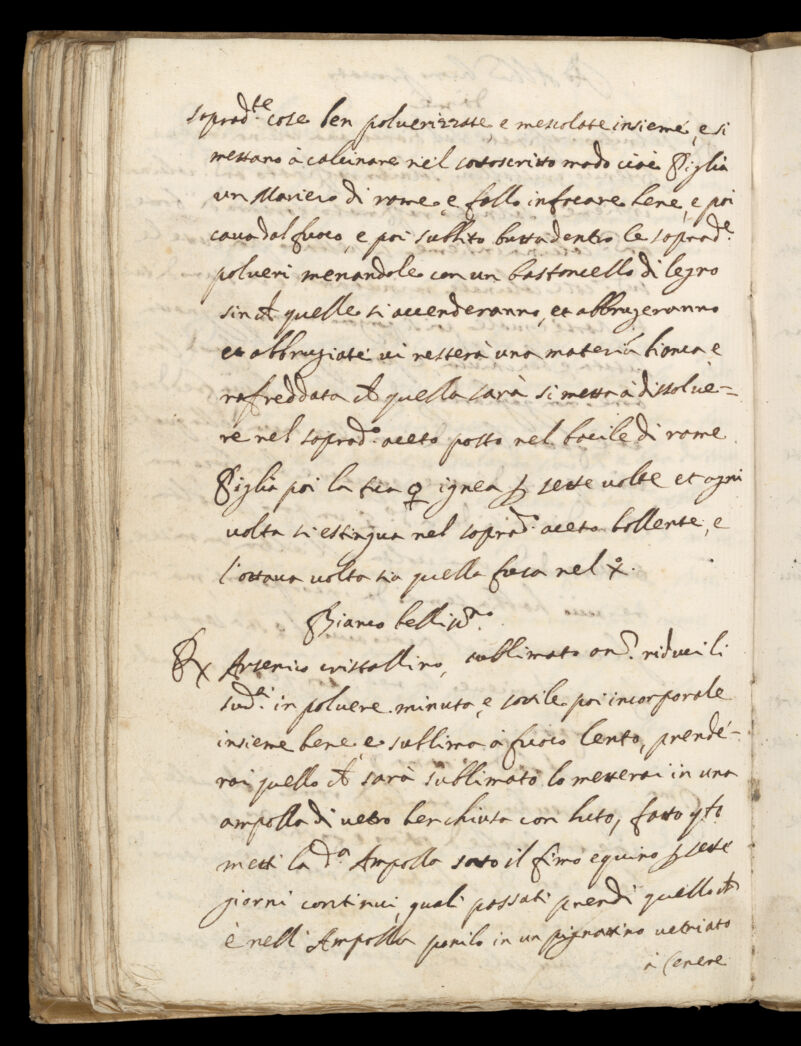 soprad.te cose ben poluerizzate e mescolate insieme, e si
mettano à calcinare nel sottoscritto modo cioè Piglia
un Mortiero di rame e fallo infocare bene, e poi
caua dal fuoco, e poi subbito butta dentro le soprad.e
polueri menandole con un bastoncello di legno
sin ch quelle si accenderanno, et abbrugeranno
et abbrugiate ui resterà una materia bianca e
rafreddata ch quella sarà si metta à dissolue=
re nel soprad.o aceto posto nel bacile di rame
Piglia poi la tua ♀ ignea p sette uolte et ogni
uolta si estingua nel soprad.o aceto bollente, e
l'ottaua uolta sia quella fusa nel
Bianco bellis.mo
Rx Arsenico cristallino, sublimato an.d riduci li
sud.i in poluere minuta, e sottile poi incorporale
insieme bene, e sublima à fuoco lento, prende=
rai quello ch sarà sublimato lo metterai in una
ampolla di uetro ben chiusa con luto, fatto q.to
metti la d.a Ampolla sotto il fimo equino p sette
giorni continui, quali passati prendi quello ch
è nell'Ampolla ponilo in un pignattino uetriato
à Cenere